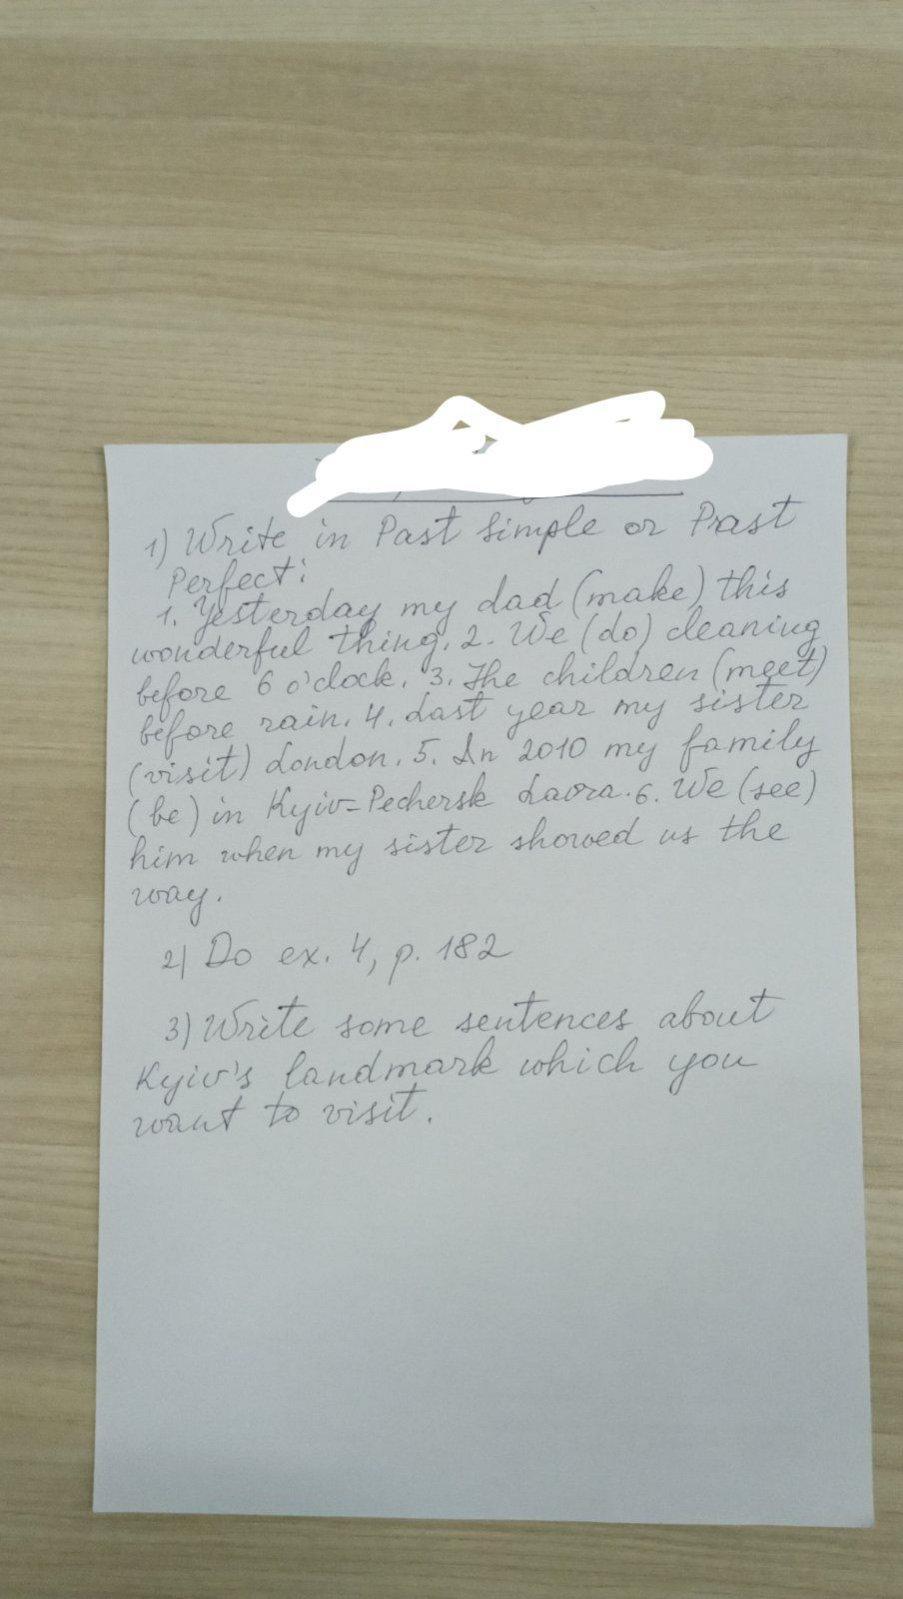 1) Write in Past Simple or Past
Perfect:
1. Yesterday my dad (make) this
wonderful thing. 2. We (do) cleaning
before 6 o'clock. 3. The children (meet)
before rain. 4. Last year my sister
(visit) London. 5. In 2010 my family
(be) in Kyiv-Pechersk Lavra. 6. We (see)
him when my sister showed us the
way.
2) Do ex. 4, p. 182
3) Write some sentences about
Kyiv's landmark which you
want to visit.